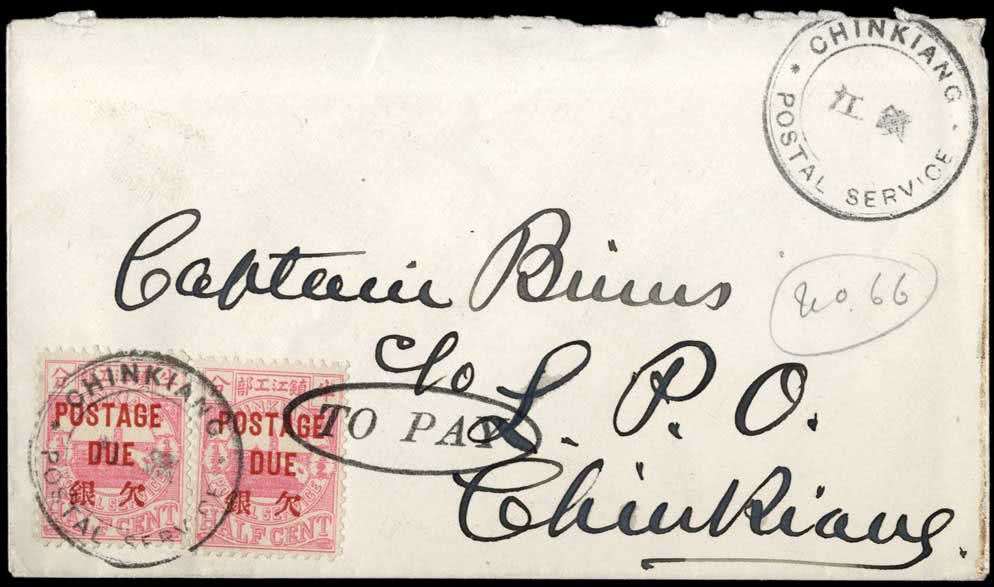 * CHINKIANG *
江鎮
POSTAL SERVICE
Captain Binns
No. 66
c/o L. P. O.
Chinkiang.
TO PAY
CHINKIANG
POSTAL SERVICE
POSTAGE
DUE
銀欠
HALF CENT
部工江鎮
POSTAGE
DUE
銀欠
HALF CENT